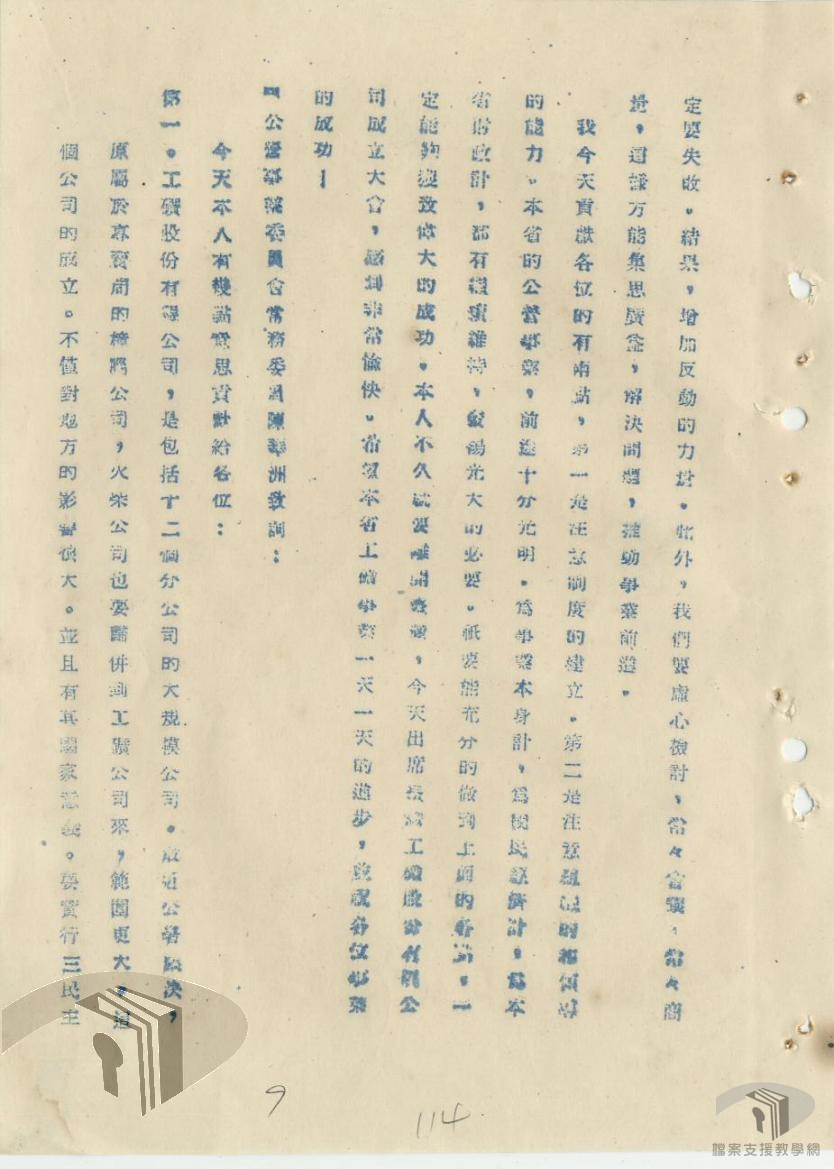 定要失敗。結果,增加反動的力量。此外,我們要虛心檢討,常々會談,常々商
量,這樣方能集思廣益,解決問題,推動事業前進。
我今天貢獻各位的有兩點,第一是注意制度的建立。第二是注意組織的和領導
的能力。本省的公營事業,前途十分光明。為事業本身計,為國民經濟計,為本
省財政計,都有繼續維持,發揚光大的必要。祇要能充分的做到上面的各點,一
定能夠獲致偉大的成功。本人不久就要離開臺灣,今天出席臺灣工礦股份有限公
司成立大會,感到非常愉快。希望本省工礦事業一天一天的進步,並祝各位事業
的成功!
公營事業委員會常務委員陳 洲致詞:
今天本人有幾點意思貢獻給各位:
第一。工礦股份有限公司,是包括十二個分公司的大規模公司。最近公署議決,
原屬於專賣局的樟腦公司,火柴公司也要歸併到工礦公司來,範圍更大,這
個公司的成立。不僅對地方的影響很大。並且有其國家意義。要實行三民主
9
114
檔案支援教學網